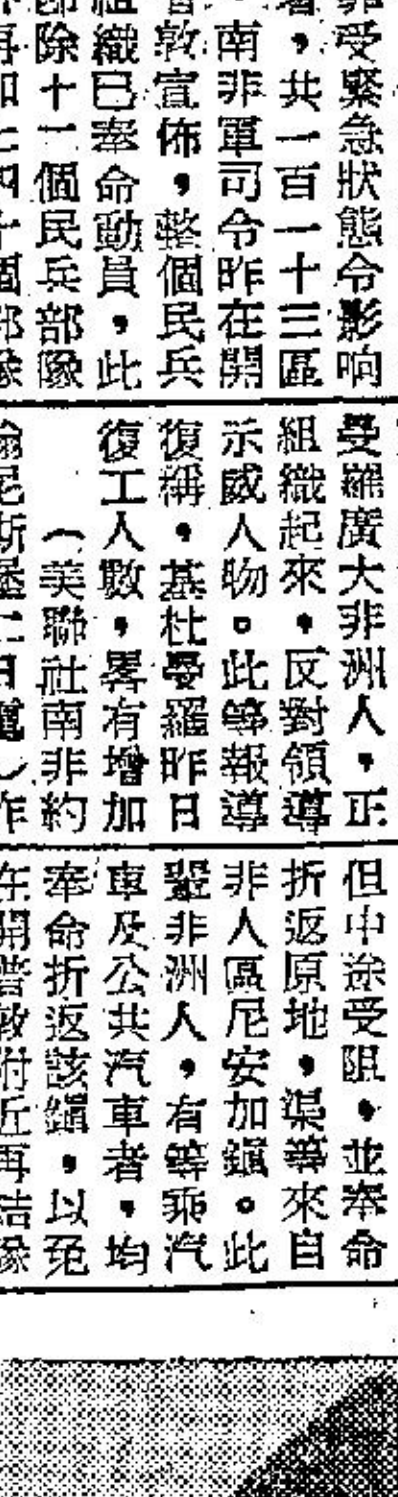 受緊急狀態令影响
，共一百一十三區
南非軍司令昨在開
敦宣佈，整個民兵
組織已奉命動員，此
除十一個民兵部隊
再加上四十個部隊
曼羅廣大非洲人，正
組織起來，反對領導
示威人物。此等報導
復稱，基杜曼羅昨日
復工人數，畧有增加
（美聯社南非約
翰尼斯堡二日電）昨
但中途受阻，並奉命
折返原地，渠等來自
非人區尼安加鎮。此
輩非洲人，有等乘汽
車及公共汽車者，均
奉命折返該鎮，以免
在開普敦附近再結隊